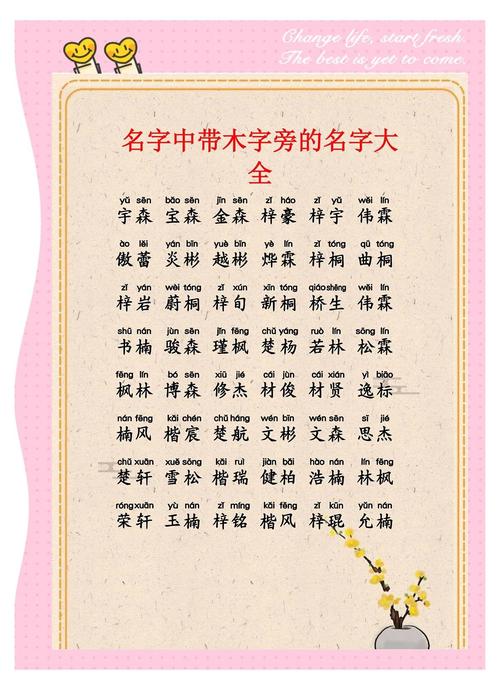 Change life, start fresh.
The best is yet to come.
名字中带木字旁的名字大
全
yǔ sēn bǎo sēn jīn sēn zǐ háo zǐ yǔ wěi lín
宇森 宝森 金森 梓豪 梓宇 伟霖
ào lěi yán bīn yuè bīn yè lín zǐ tóng qū tóng
傲蕾 炎彬 越彬 烨霖 梓桐 曲桐
zǐ yán wèi tóng zǐ xún xīn tóng qiáo shēng wěi lín
梓岩 蔚桐 梓旬 新桐 桥生 伟霖
shū nán jùn sēn jǐn fēng chǔ yáng ruò lín sōng lín
书楠 骏森 瑾枫 楚杨 若林 松霖
fēng lín bó sēn xiū jié cái jùn cái xián yì biāo
枫林 博森 修杰 材俊 材贤 逸标
nán fēng kǎi chén chǔ háng wén bīn wén sēn sī jié
楠风 楷宸 楚航 文彬 文森 思杰
chǔ xuān xuě sōng kǎi ruì jiàn bǎi hào nán lín fēng
楚轩 雪松 楷瑞 健柏 浩楠 林枫
róng xuān yù nán zǐ míng kǎi fēng zǐ kūn yǔn nán
荣轩 玉楠 梓铭 楷风 梓琨 允楠